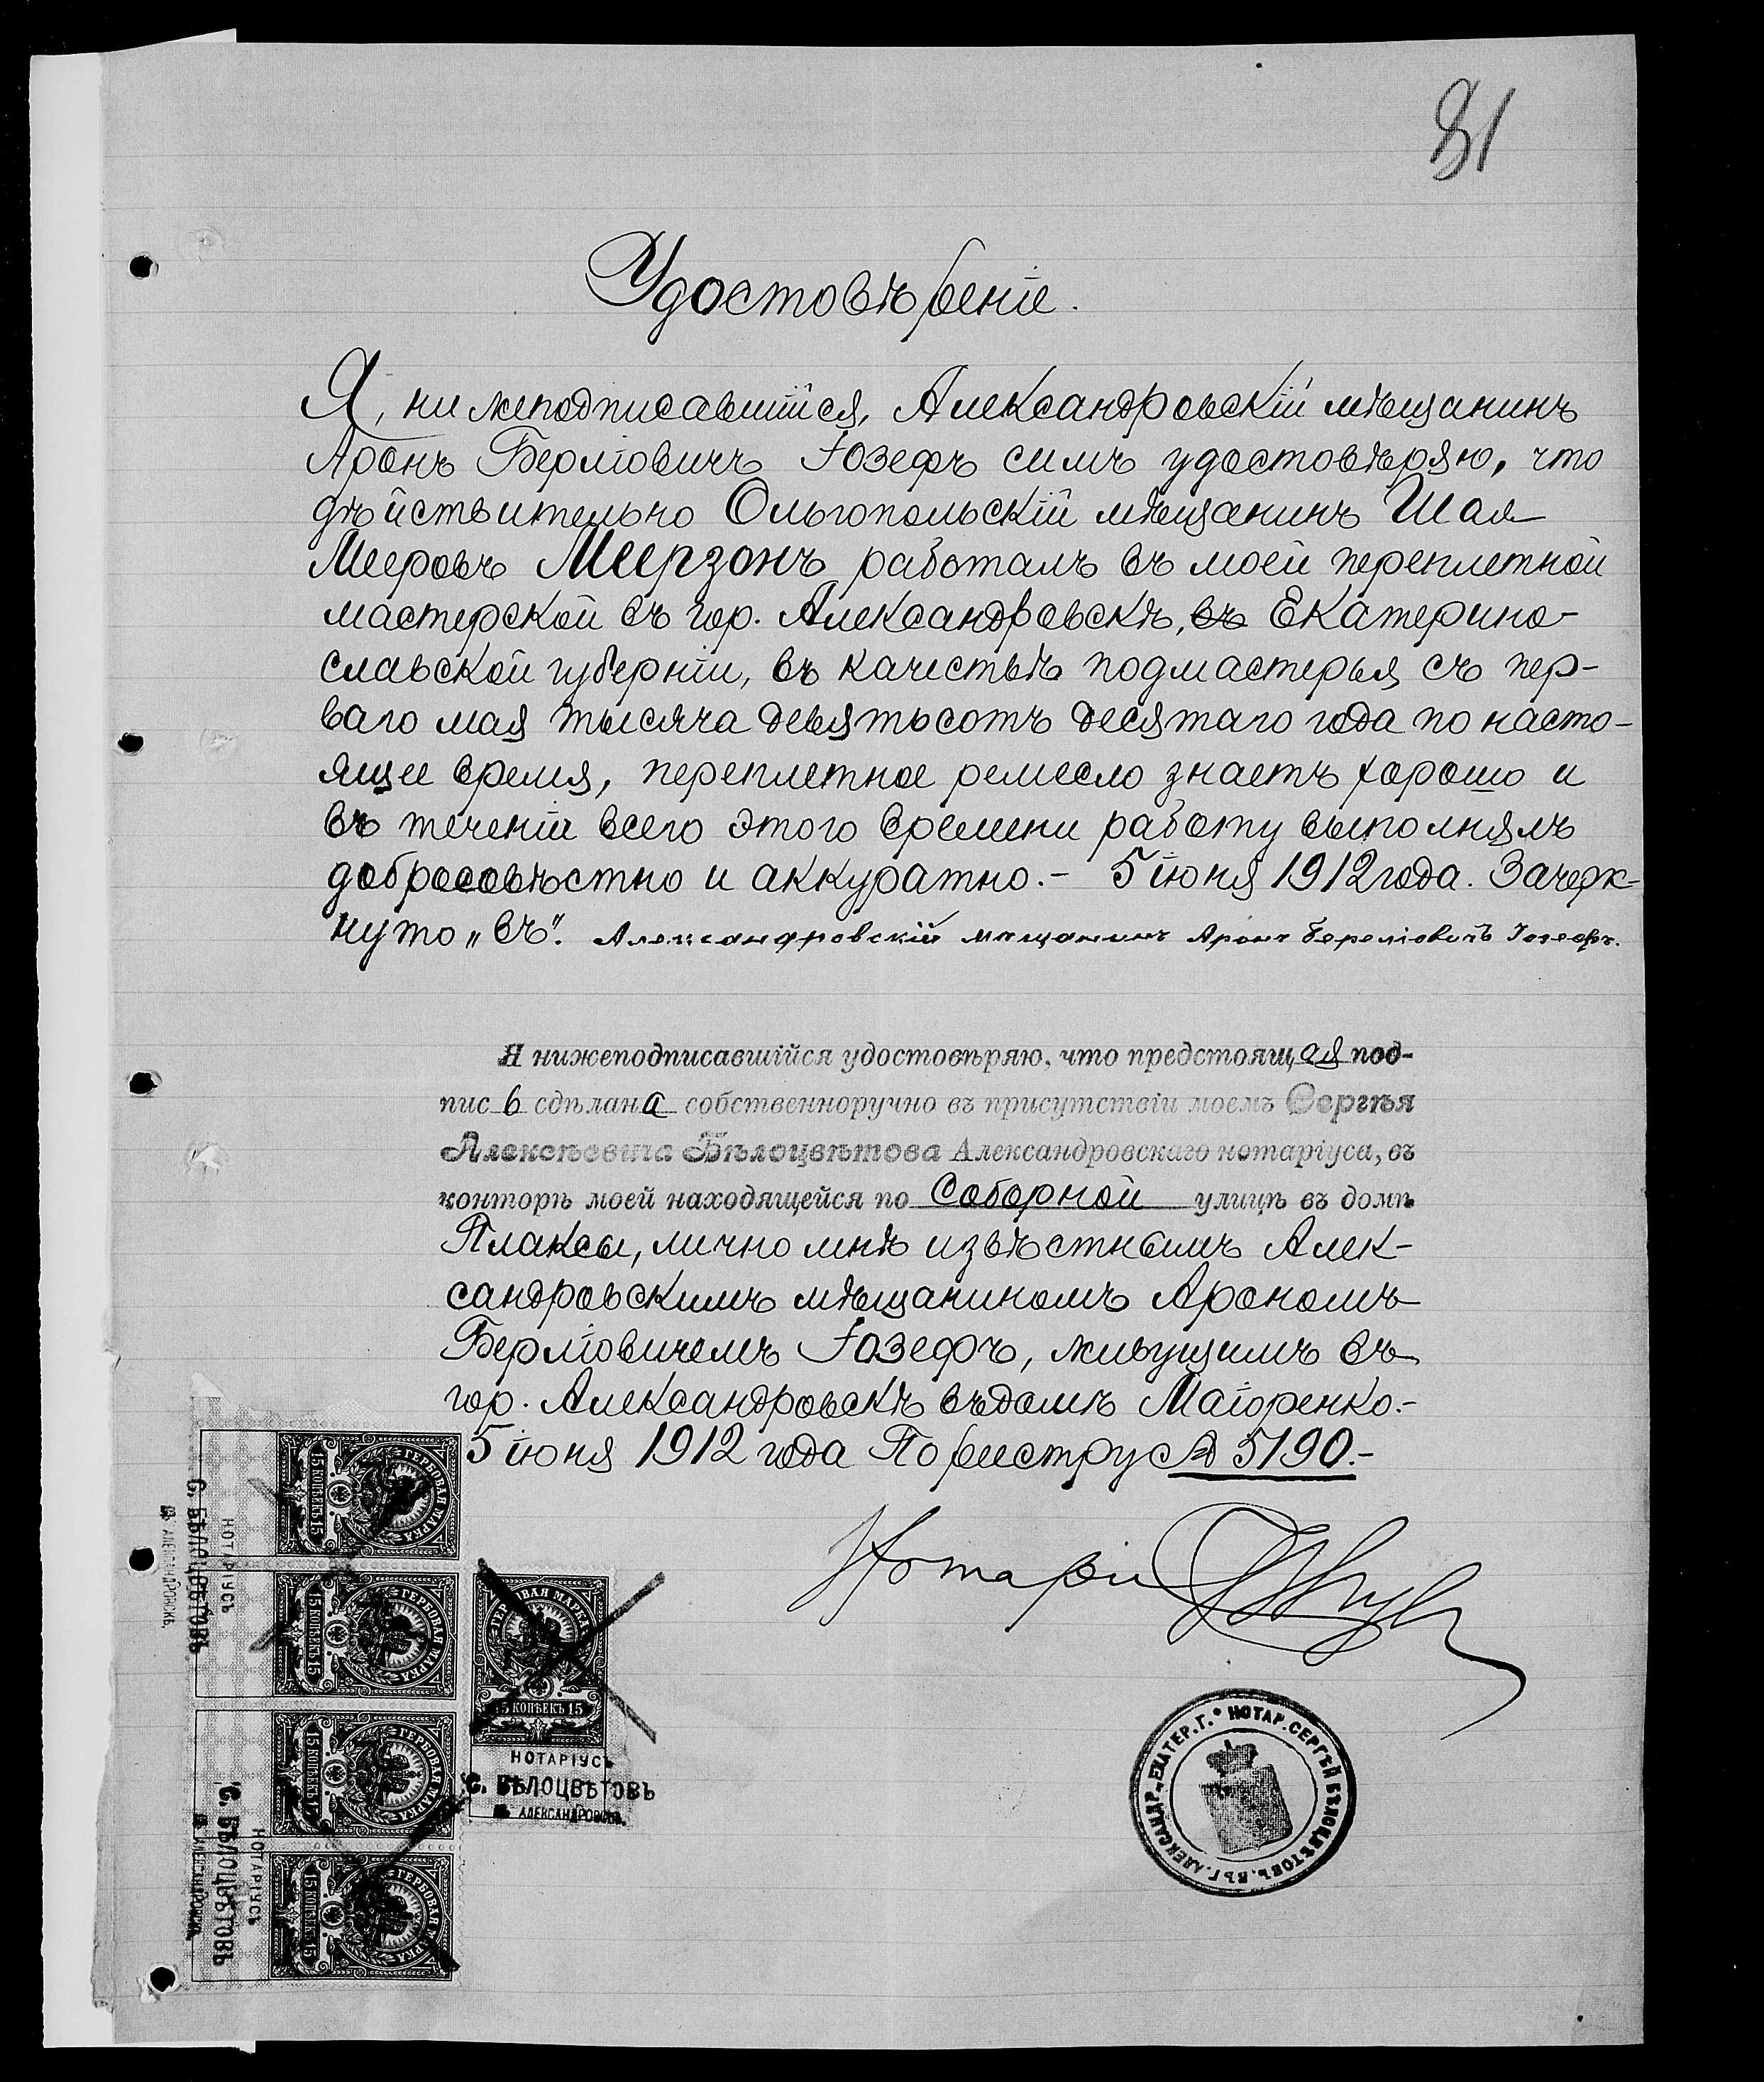 81
Удостовѣреніе.
Я, нижеподписавшійся, Александровскій мѣщанинъ
Аронъ Берліовичъ Іозефъ симъ удостовѣряю, что
дѣйствительно Ольгопольскій мѣщанинъ Шая
Мееровъ Меерзонъ работалъ въ моей переплетной
мастерской въ гор. Александровскѣ, въ Екатерино-
славской губерніи, въ качествѣ подмастерья съ пер-
ваго мая тысяча девятьсотъ десятаго года по насто-
ящее время, переплетное ремесло знаетъ хорошо и
въ теченіи всего этого времени работу выполнялъ
добросовѣстно и аккуратно.- 5 іюня 1912 года. Зачерк-
нуто „въ". Александровскій мѣщанинъ Аронъ Береліовичъ Іозефъ.
Я нижеподписавшійся удостовѣряю, что предстоящая под-
пись сдѣлана собственноручно въ присутствіи моемъ Сергѣя
Алексѣевича Бѣлоцвѣтова Александровскаго нотаріуса, въ
конторѣ моей находящейся по Соборной улицѣ въ домѣ
Плаксы, лично мнѣ извѣстнымъ Алек-
сандровскимъ мѣщаниномъ Арономъ
Берліовичемъ Іозефъ, живущимъ въ
гор. Александровскѣ въ домѣ Маіоренко.-
5 іюня 1912 года По реестру № 5190.-
Нотаріусъ
ГЕРБОВАЯ МАРКА
15 КОПѢЕКЪ 15
НОТАРІУСЪ
С. БѢЛОЦВѢТОВЪ
въ АЛЕКСАНДРОВСКѢ.
ГЕРБОВАЯ МАРКА
15 КОПѢЕКЪ 15
ГЕРБОВАЯ МАРКА
15 КОПѢЕКЪ 15
НОТАРІУСЪ
С. БѢЛОЦВѢТОВЪ
въ АЛЕКСАНДРОВСКѢ.
ГЕРБОВАЯ МАРКА
15 КОПѢЕКЪ 15
ГЕРБОВАЯ МАРКА
15 КОПѢЕКЪ 15
НОТАРІУСЪ
С. БѢЛОЦВѢТОВЪ
въ АЛЕКСАНДРОВСКѢ.
НОТАР. СЕРГѢЙ БѢЛОЦВѢТОВЪ. ВЪ Г. АЛЕКСАНДР. ЕКАТЕР. Г.